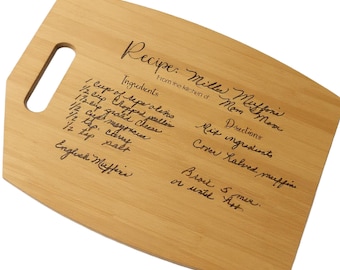 Recipe: Millie Muffins
From the kitchen of: Mom Mom
Ingredients
1 cup of ripe olives
1/2 cup chopped
1/2 cup grated cheese
1/2 cup mayonnaise
1/2 tsp. curry
1/2 tsp salt
English Muffins
Directions
Mix ingredients
Cover halved muffins
Broil 5 min
or until hot.